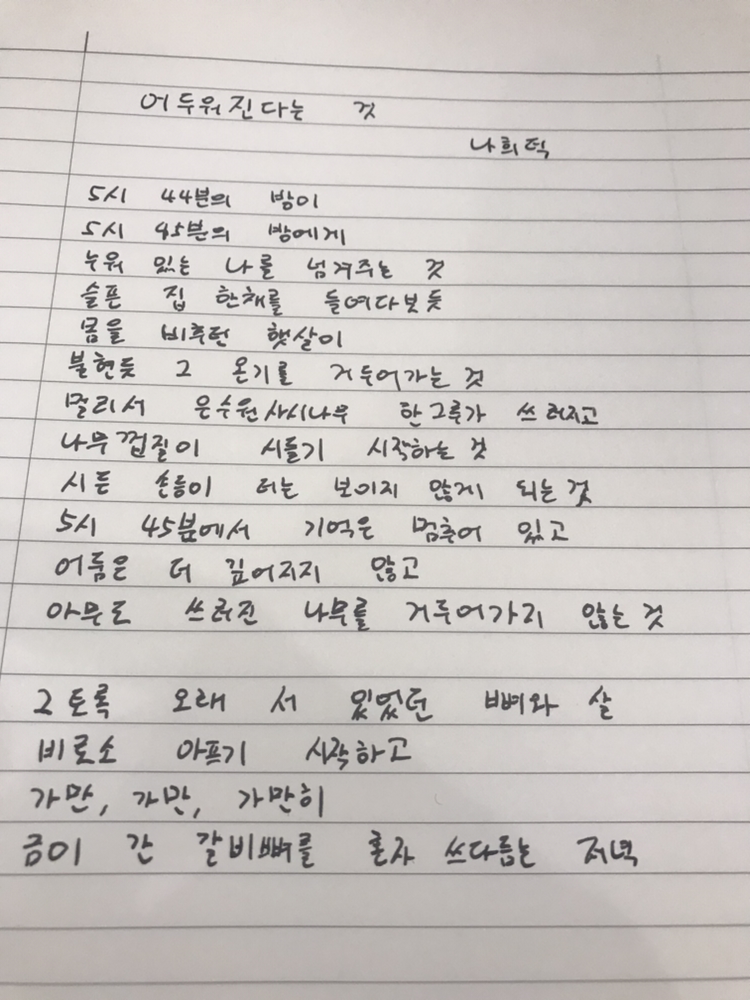 어두워진다는 것
나희덕
5시 44분의 방이
5시 45분의 방에게
누워 있는 나를 넘겨주는 것
슬픈 집 한채를 들여다보듯
몸을 비추던 햇살이
불현듯 그 온기를 거두어가는 것
멀리서 은수원사시나무 한그루가 쓰러지고
나무 껍질이 시들기 시작하는 것
시든 손등이 더는 보이지 않게 되는 것
5시 45분에서 기억은 멈추어 있고
어둠은 더 깊어지지 않고
아무도 쓰러진 나무를 거두어가지 않는 것
그토록 오래 서 있었던 뼈와 살
비로소 아프기 시작하고
가만, 가만, 가만히
금이 간 갈비뼈를 혼자 쓰다듬는 저녁